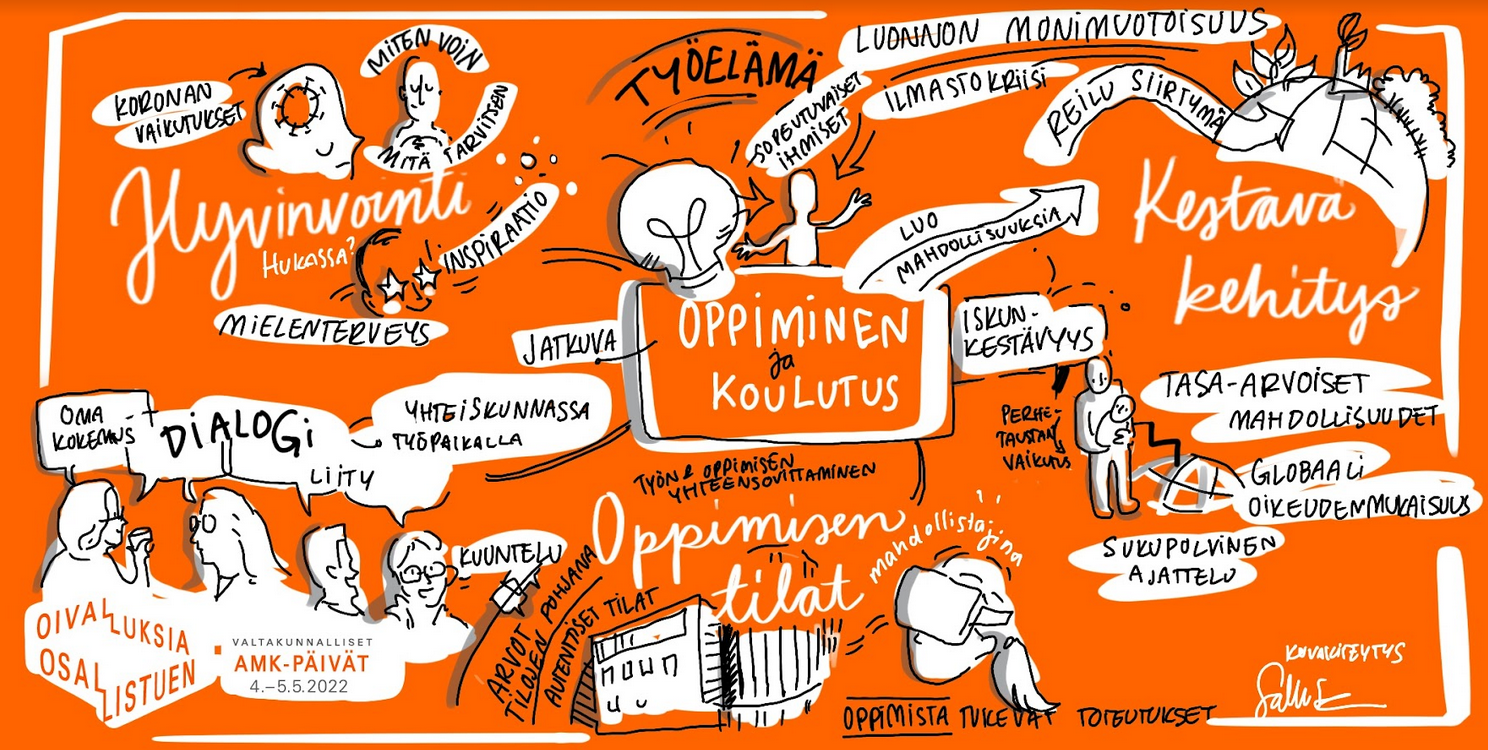 KORONAN
VAIKUTUKSET
MITEN VOIN
MITÄ TARVITSEN
Hyvinvointi
HUKASSA?
INSPIRAATIO
MIELENTERVEYS
TYÖELÄMÄ
SOPEUTUVAISET
IHMISET
LUONNON MONIMUOTOISUUS
ILMASTOKRIISI
REILU SIIRTYMÄ
Kestävä
kehitys
LUO
MAHDOLLISUUKSIA
JATKUVA
OPPIMINEN
ja
KOULUTUS
ISKUN-
KESTÄVYYS
PERHE-
TAUSTAN
VAIKUTUS
TASA-ARVOISET
MAHDOLLISUUDET
GLOBAALI
OIKEUDENMUKAISUUS
SUKUPOLVINEN
AJATTELU
OMA
KOKEMUS
DIALOGI
LIITY
YHTEISKUNNASSA
TYÖPAIKALLA
KUUNTELU
TYÖN & OPPIMISEN
YHTEENSOVITTAMINEN
Oppimisen
tilat
mahdollistajina
ARVOT
TILOJEN POHJANA
AUTENTISET TILAT
OPPIMISTA TUKEVAT TOTEUTUKSET
OIVALLUKSIA
OSALLISTUEN
VALTAKUNNALLISET
AMK-PÄIVÄT
4.–5.5.2022
KUVAKITEYTYS